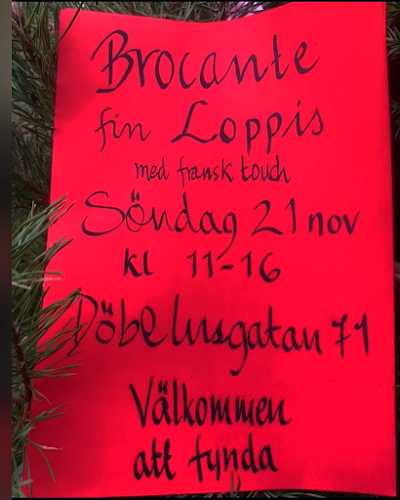 Brocante
fin Loppis
med fransk touch
Söndag 21 nov
kl 11-16
Döbelnsgatan 71
Välkommen
att fynda